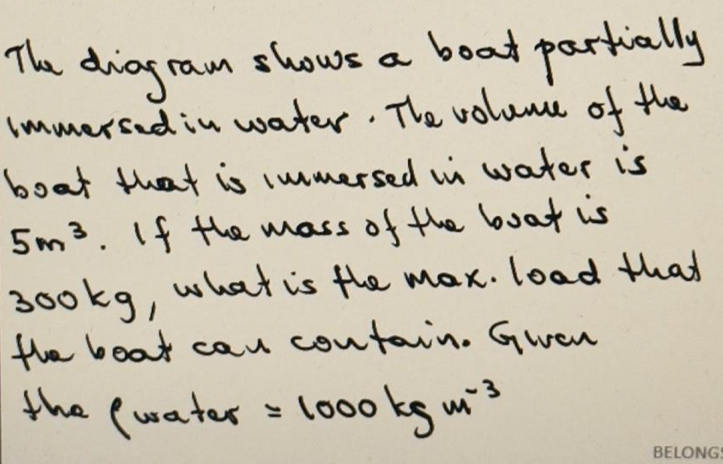 The diagram shows a boat partially
immersed in water. The volume of the
boat that is immersed in water is
5m³. If the mass of the boat is
300kg, what is the max. load that
the boat can contain. Given
the ρwater = 1000 kg m⁻³
BELONGS